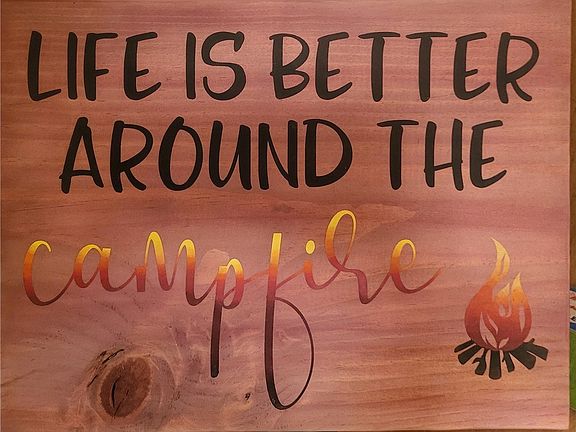 LIFE IS BETTER
AROUND THE
campfire